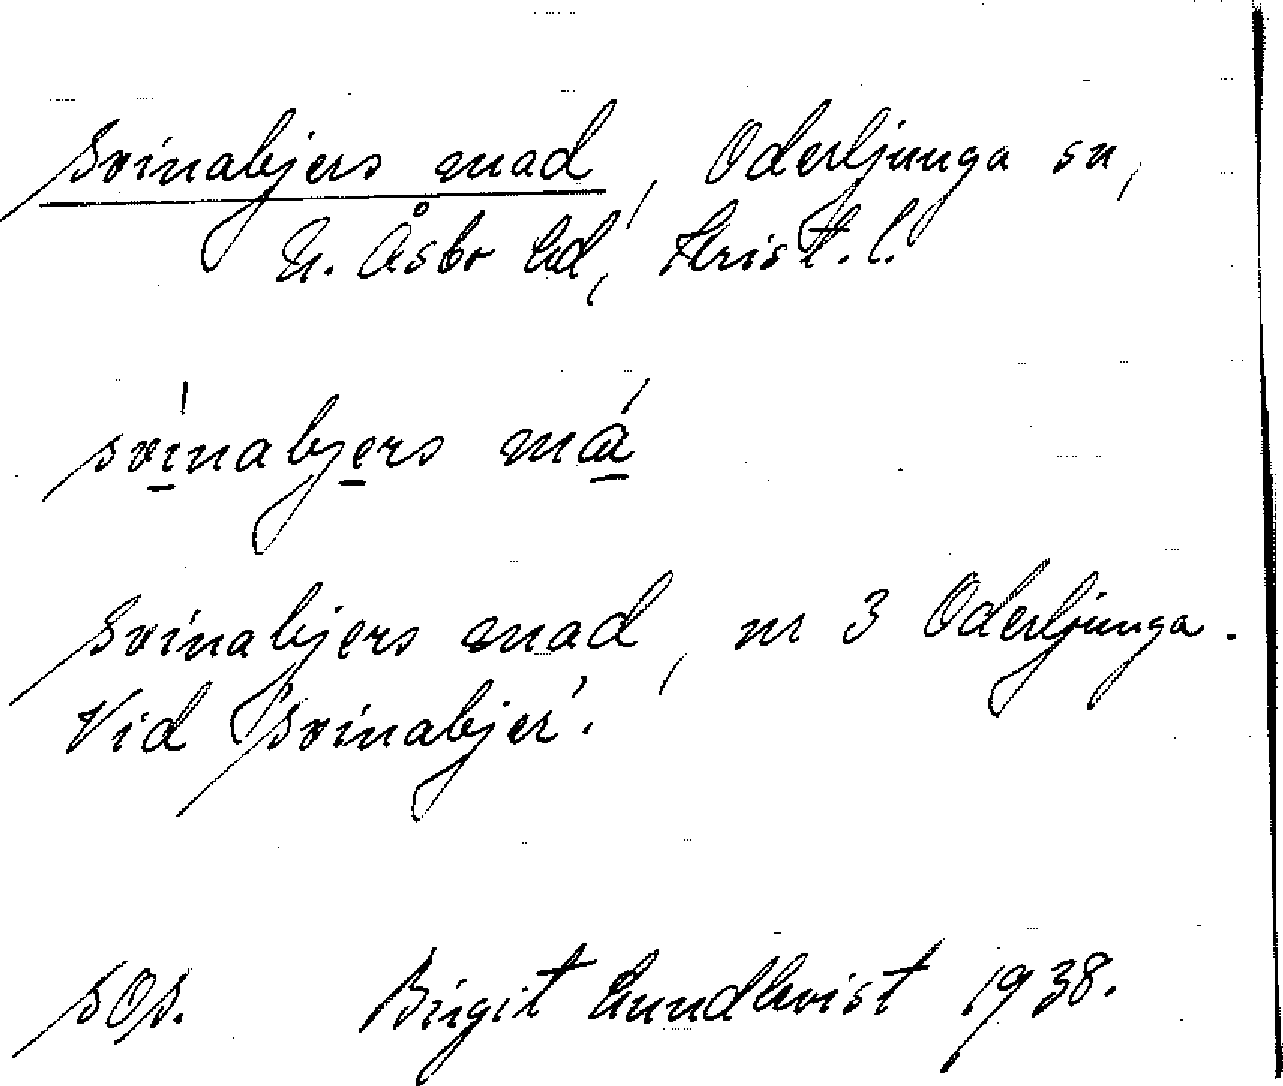 Svinabjers mad, Oderljunga sn,
N. Åsbo hd, Krist. l.
svinabjers má
Svinabjers mad, nr 3 Oderljunga.
Vid "Svinabjer".
SOS. Birgit Lundkvist 1938.